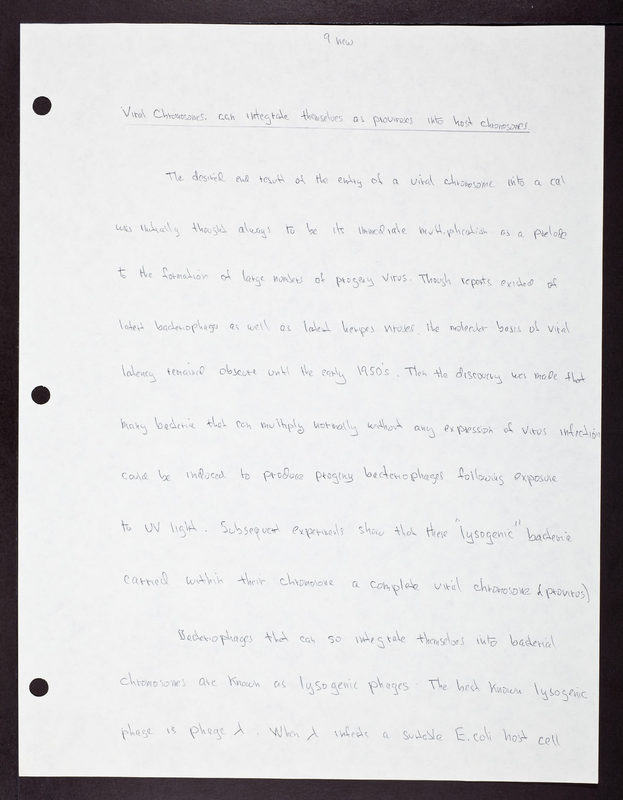 9 new
Viral Chromosomes can integrate themselves as proviruses into host chromosomes.
The desired end result of the entry of a viral chromosome into a cell
was initially thought always to be its immediate multiplication as a prelude
to the formation of large numbers of progeny virus. Though reports existed of
latent bacteriophages as well as latent herpes viruses, the molecular basis of viral
latency remained obscure until the early 1950's. Then the discovery was made that
many bacteria that can multiply normally without any expression of virus infection
could be induced to produce progeny bacteriophages following exposure
to UV light. Subsequent experiments show that these "lysogenic" bacteria
carried within their chromosome a complete viral chromosome (provirus)
Bacteriophages that can so integrate themselves into bacterial
chromosomes are known as lysogenic phages. The best known lysogenic
phage is phage λ. When λ infects a suitable E. coli host cell